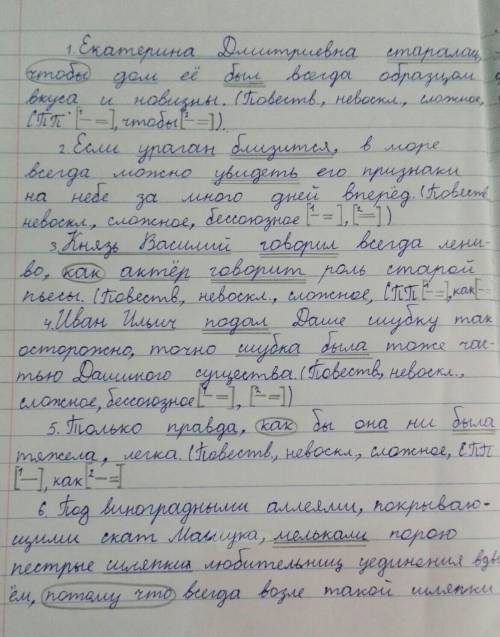 1. Екатерина Дмитриевна старалас
чтобы дом её был всегда образцом
вкуса и новизны. (Повеств., невоскл., сложное,
СПП [¹— =], чтобы [²— =]).
2. Если ураган близится, в море
всегда можно увидеть его признаки
на небе за много дней вперёд. (Повеств
невоскл., сложное, бессоюзное [¹— =], [²=])
3. Князь Василий говорил всегда лени-
во, как актёр говорит роль старой
пьесы. (Повеств., невоскл., сложное, СПП [¹— =], как [—
4. Иван Ильич подал Даше шубку так
осторожно, точно шубка была тоже час-
тью Дашиного существа. (Повеств, невоскл.,
сложное, бессоюзное [¹— =], [²— =])
5. Только правда, как бы она ни была
тяжела, легка. (Повеств., невоскл., сложное, СПП
[¹—], как [²— =]
6. Под виноградными аллеями, покрываю-
щими скат Машука, мелькали порою
пестрые шляпки любительниц уединения вдво
ём, потому что всегда возле такой шляпки